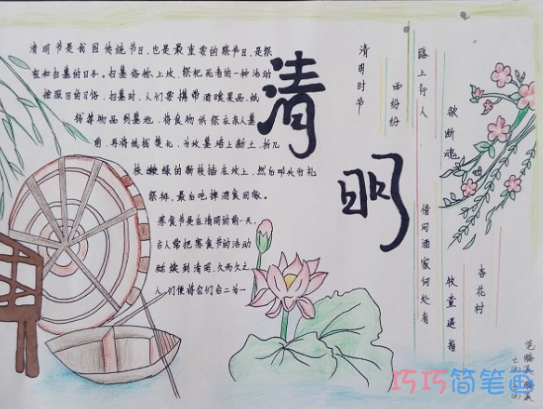 清明节是我国传统节日,也是最重要的祭节日,是祭
祖和扫墓的日子,扫墓俗称上坟,祭祀死者的一种活动
按照旧的习俗,扫墓时,人们要携带酒食果品,纸
钱等物品到墓地,将食物供祭在亲人墓
前,再将纸钱焚化,为坟墓培上新土,折几
枝嫩绿的新枝插在坟上,然后叩头行礼
祭拜,最后吃掉酒食回家。
寒食节是在清明的前一天,
古人常把寒食节的活动
延续到清明,久而久之
人们便将它们合二为一
清
明
清明时节
雨纷纷
路上行人
欲断魂
借问酒家何处有
牧童遥指
杏花村
巧巧简笔画